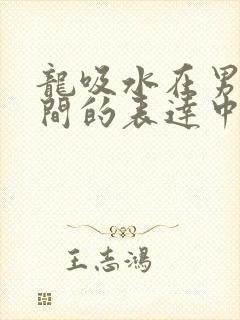 龍吸水在男
間的表達中
王志鴻